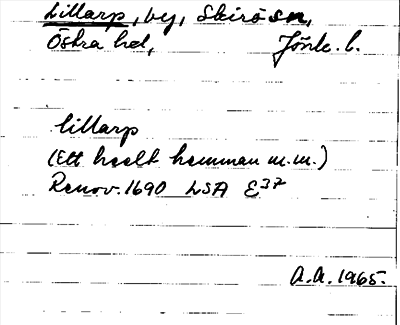 Lillarp, by, Skirö sn,
Östra hd, Jönk. l.
Lillarp
(Ett heelt hemman m.m.)
Renov. 1690 LSA E37
A.A. 1965.